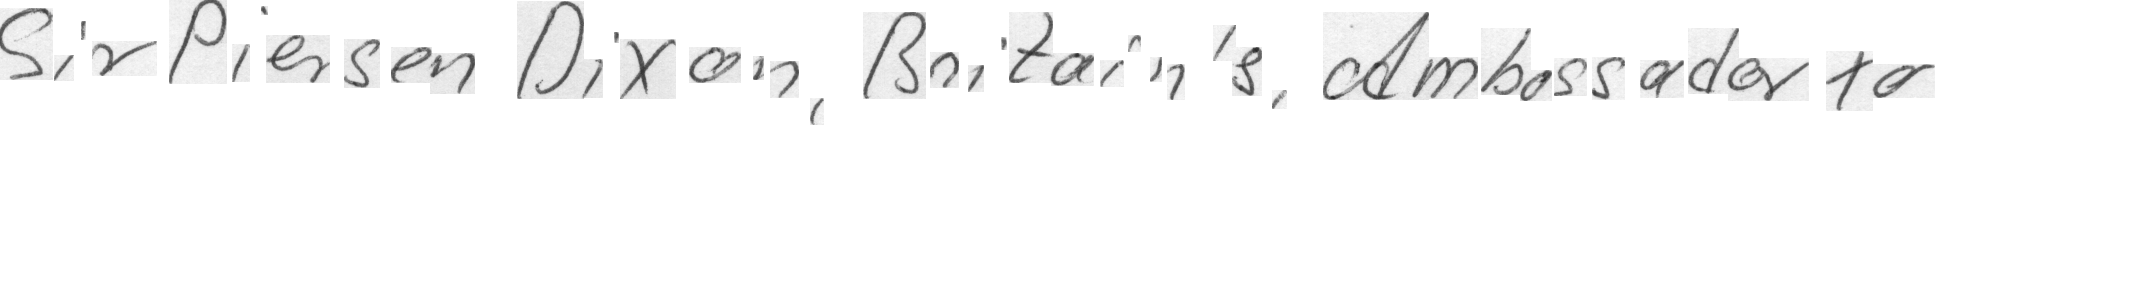 Sir Piersen Dixon, Britain's, Ambassador to